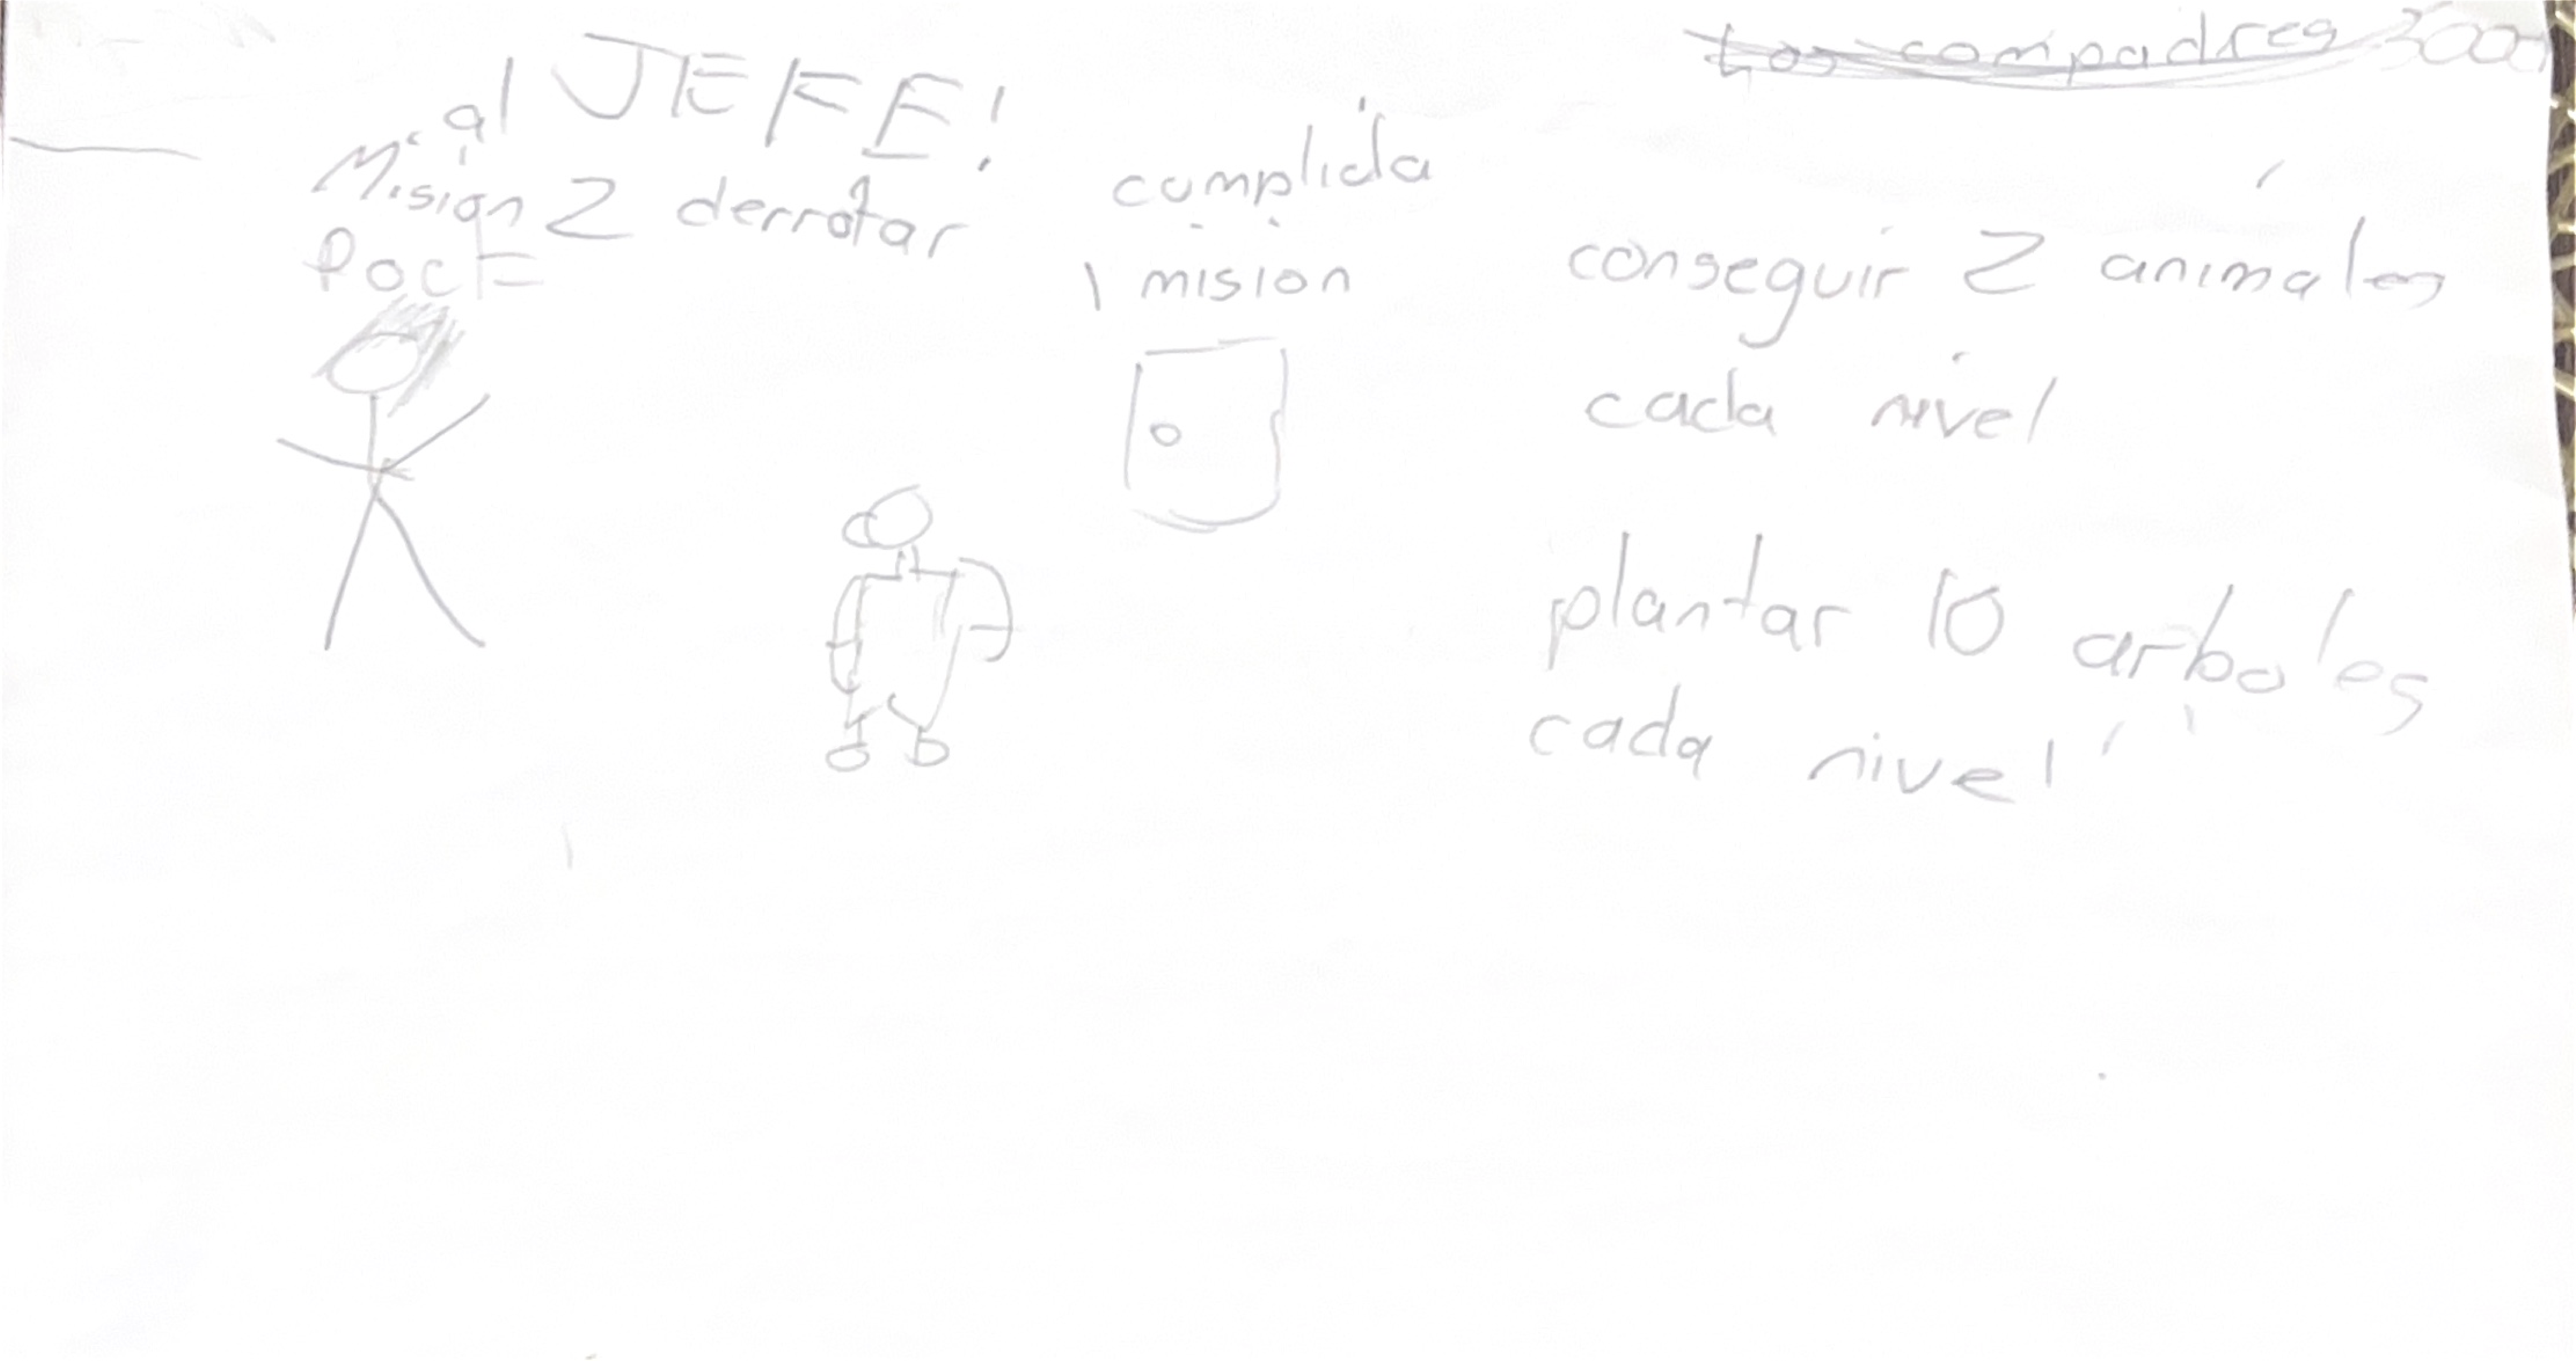 Los compadres 3000
al JEFE!
Mision 2 derrotar
cumplida
1 mision
conseguir 2 animales
cada nivel
plantar 10 arboles
cada nivel